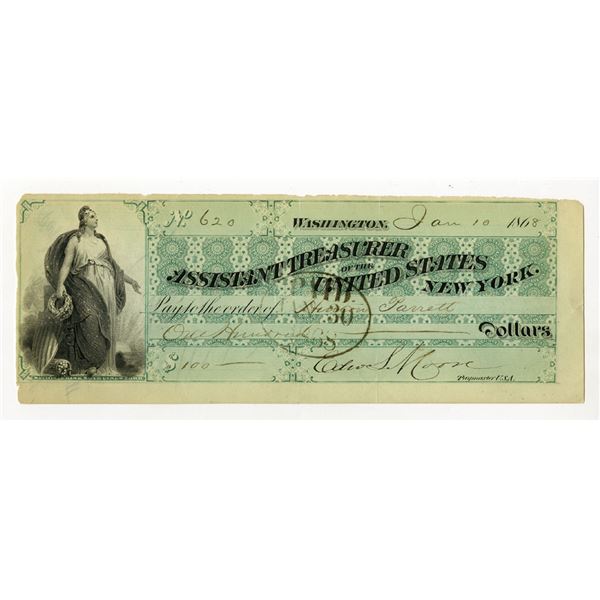 No 620 Washington, Jan 10 1868
Assistant Treasurer
of the
United States
New York.
Pay to the order of Parrett
One Hundred Dollars
$ 100 — Moore
Paymaster U.S.A.
30